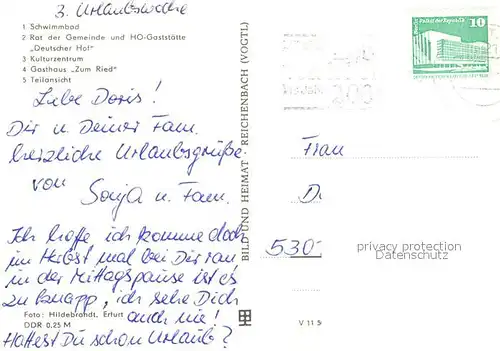 3. Urlaubswoche
1 Schwimmbad
2 Rat der Gemeinde und HO-Gaststätte
„Deutscher Hof"
3 Kulturzentrum
4 Gasthaus „Zum Ried"
5 Teilansicht
Liebe Doris!
Dir u. Deiner Fam.
herzliche Urlaubsgrüße
von
Sonja u. Fam.
Ich hoffe ich komme doch
im Herbst mal bei Dir ran
in der Mittagspause ist es
zu knapp, ich sehe Dich
auch nie!
Hattest Du schon Urlaub?
Foto: Hildebrandt, Erfurt
DDR 0,25 M
BILD UND HEIMAT · REICHENBACH (VOGTL)
Palast der Republik
10
Frau
D
530
privacy protection
Datenschutz
V 11 5